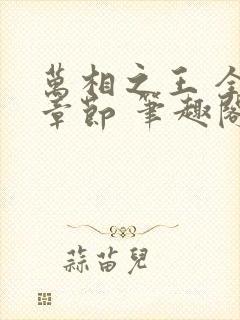 萬相之王 全
章節 筆趣閣
蒜苗兒